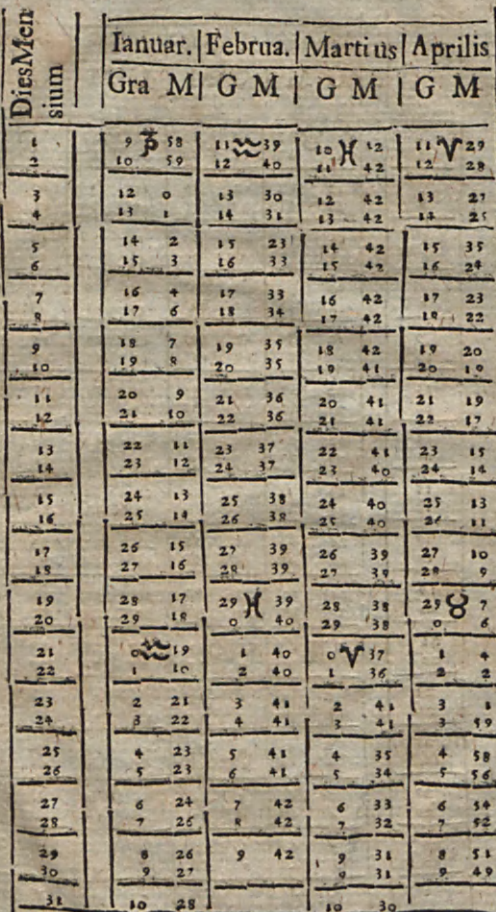 DiesMen
sium
Ianuar. Februa. Martius Aprilis
Gra M G M G M G M
1 9 ♑ 58 11 ♒ 39 10 ♓ 12 11 ♈ 29
2 10 59 12 40 11 42 12 28
3 12 0 13 30 12 42 13 27
4 13 1 14 31 13 42 14 25
5 14 2 15 23 14 42 15 35
6 15 3 16 33 15 42 16 24
7 16 4 17 33 16 42 17 23
8 17 6 18 34 17 42 18 22
9 18 7 19 35 18 42 19 20
10 19 8 20 35 19 41 20 19
11 20 9 21 36 20 41 21 19
12 21 10 22 36 21 41 22 17
13 22 11 23 37 22 41 23 15
14 23 12 24 37 23 40 24 14
15 24 13 25 38 24 40 25 13
16 25 14 26 38 25 40 26 11
17 26 15 27 39 26 39 27 10
18 27 16 28 39 27 39 28 9
19 28 17 29 ♓ 39 28 38 29 ♉ 7
20 29 18 0 40 29 38 0 6
21 0 ♒ 19 1 40 0 ♈ 37 1 4
22 1 10 2 40 1 36 2 2
23 2 21 3 41 2 41 3 1
24 3 22 4 41 3 41 3 59
25 4 23 5 41 4 35 4 58
26 5 23 6 41 5 34 5 56
27 6 24 7 42 6 33 6 54
28 7 26 8 42 7 32 7 52
29 8 26 9 42 9 31 8 51
30 9 27 9 31 9 49
31 10 28 10 30